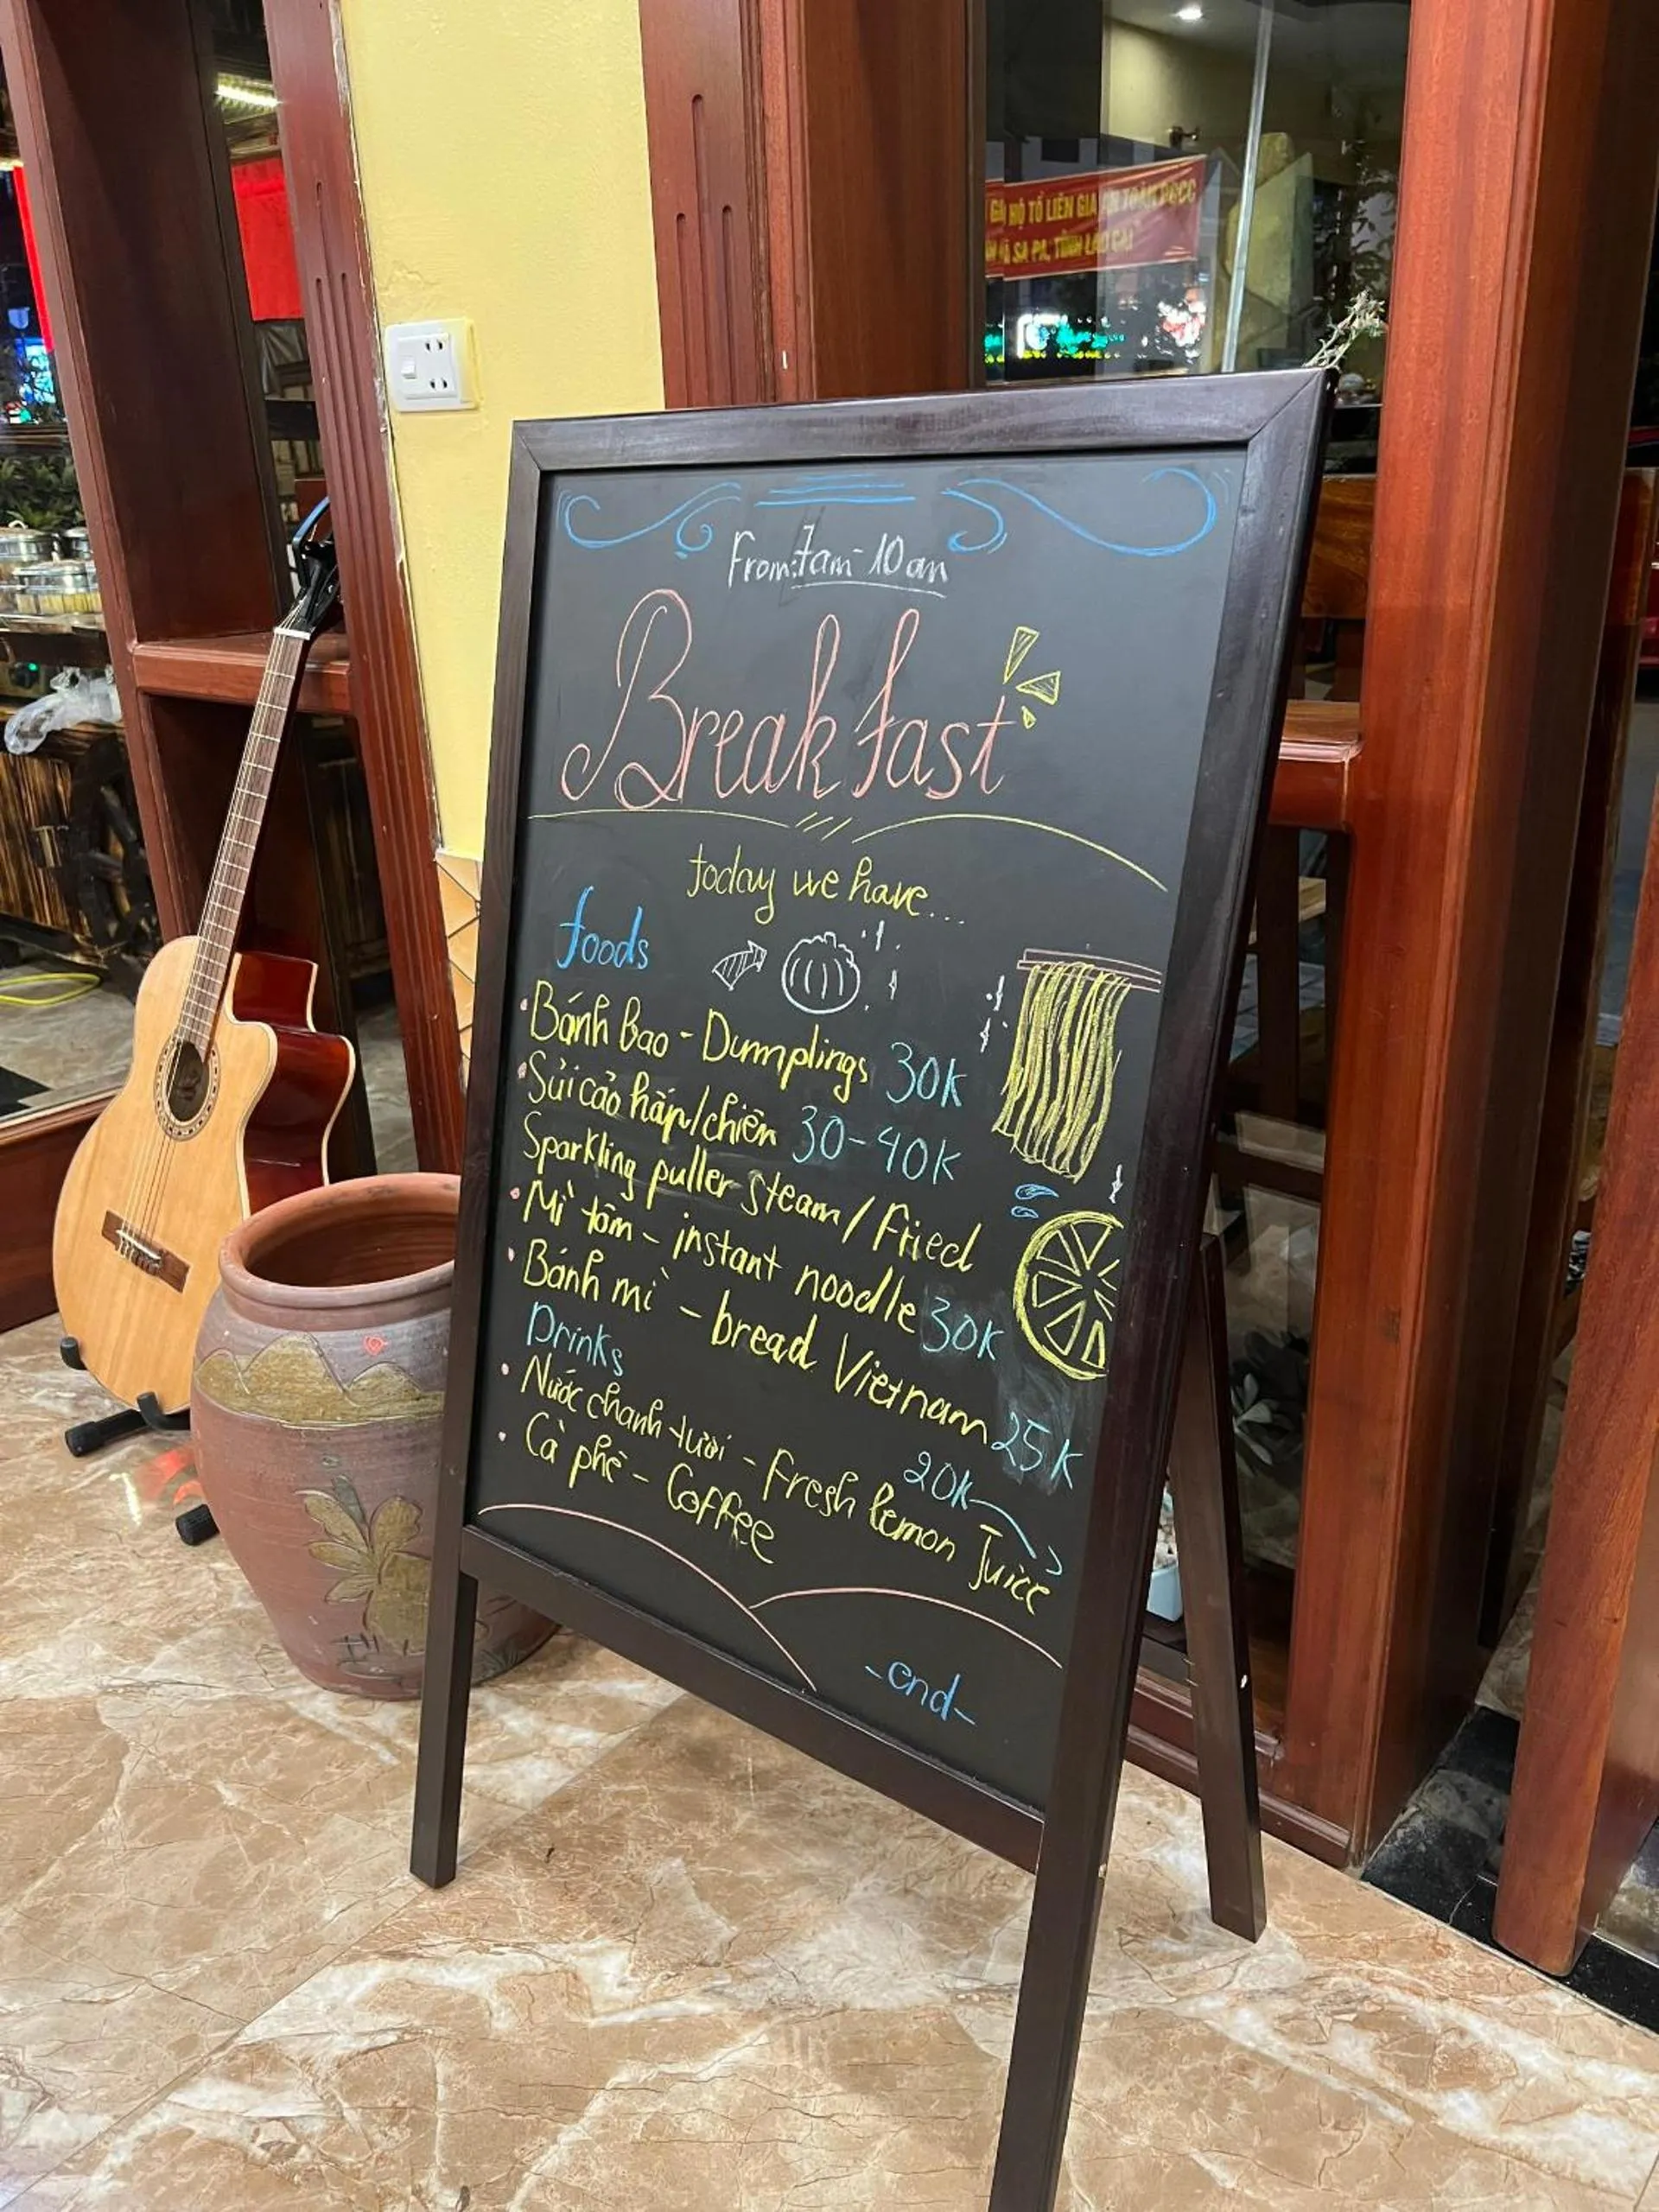 GIA HỘ TỔ LIÊN GIA AN TOÀN PCCC
SA PA, TỈNH LÀO CAI
From: 7am - 10 am
Breakfast
today we have...
foods
Bánh bao - Dumplings 30K
Sủi cảo hấp/chiên 30-40K
Sparkling puller steam / Fried
Mì tôm - instant noodle 30K
Bánh mì - bread Vietnam 25K
Drinks
Nước chanh tươi - Fresh lemon Juice 20K
Cà phê - Coffee
-end-